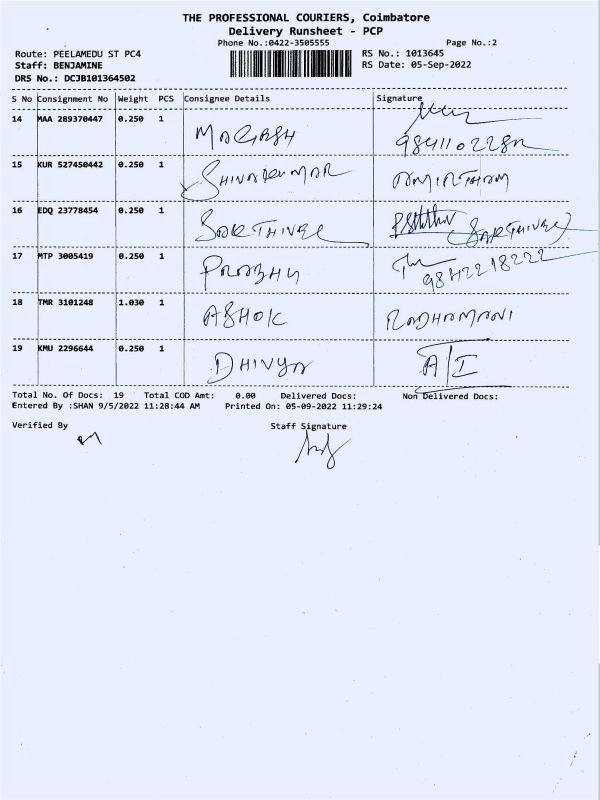 THE PROFESSIONAL COURIERS, Coimbatore
Delivery Runsheet - PCP
Phone No.:0422-3505555 Page No.:2
Route: PEELAMEDU ST PC4 RS No.: 1013645
Staff: BENJAMINE RS Date: 05-Sep-2022
DRS No.: DCJB101364502
S No Consignment No Weight PCS Consignee Details Signature
14 MAA 289370447 0.250 1 MAGESH
15 KUR 527450442 0.250 1 SHIVAKUMAR AMIRTHAM
16 EDQ 23778454 0.250 1 SAKTHIVEL SAKTHIVEL
17 MTP 3005419 0.250 1 PRABHU 9842218222
18 TMR 3101248 1.030 1 ASHOK RADHAMANI
19 KMU 2296644 0.250 1 DHIVYA A/I
Total No. Of Docs: 19 Total COD Amt: 0.00 Delivered Docs: Non Delivered Docs:
Entered By :SHAN 9/5/2022 11:28:44 AM Printed On: 05-09-2022 11:29:24
Verified By Staff Signature